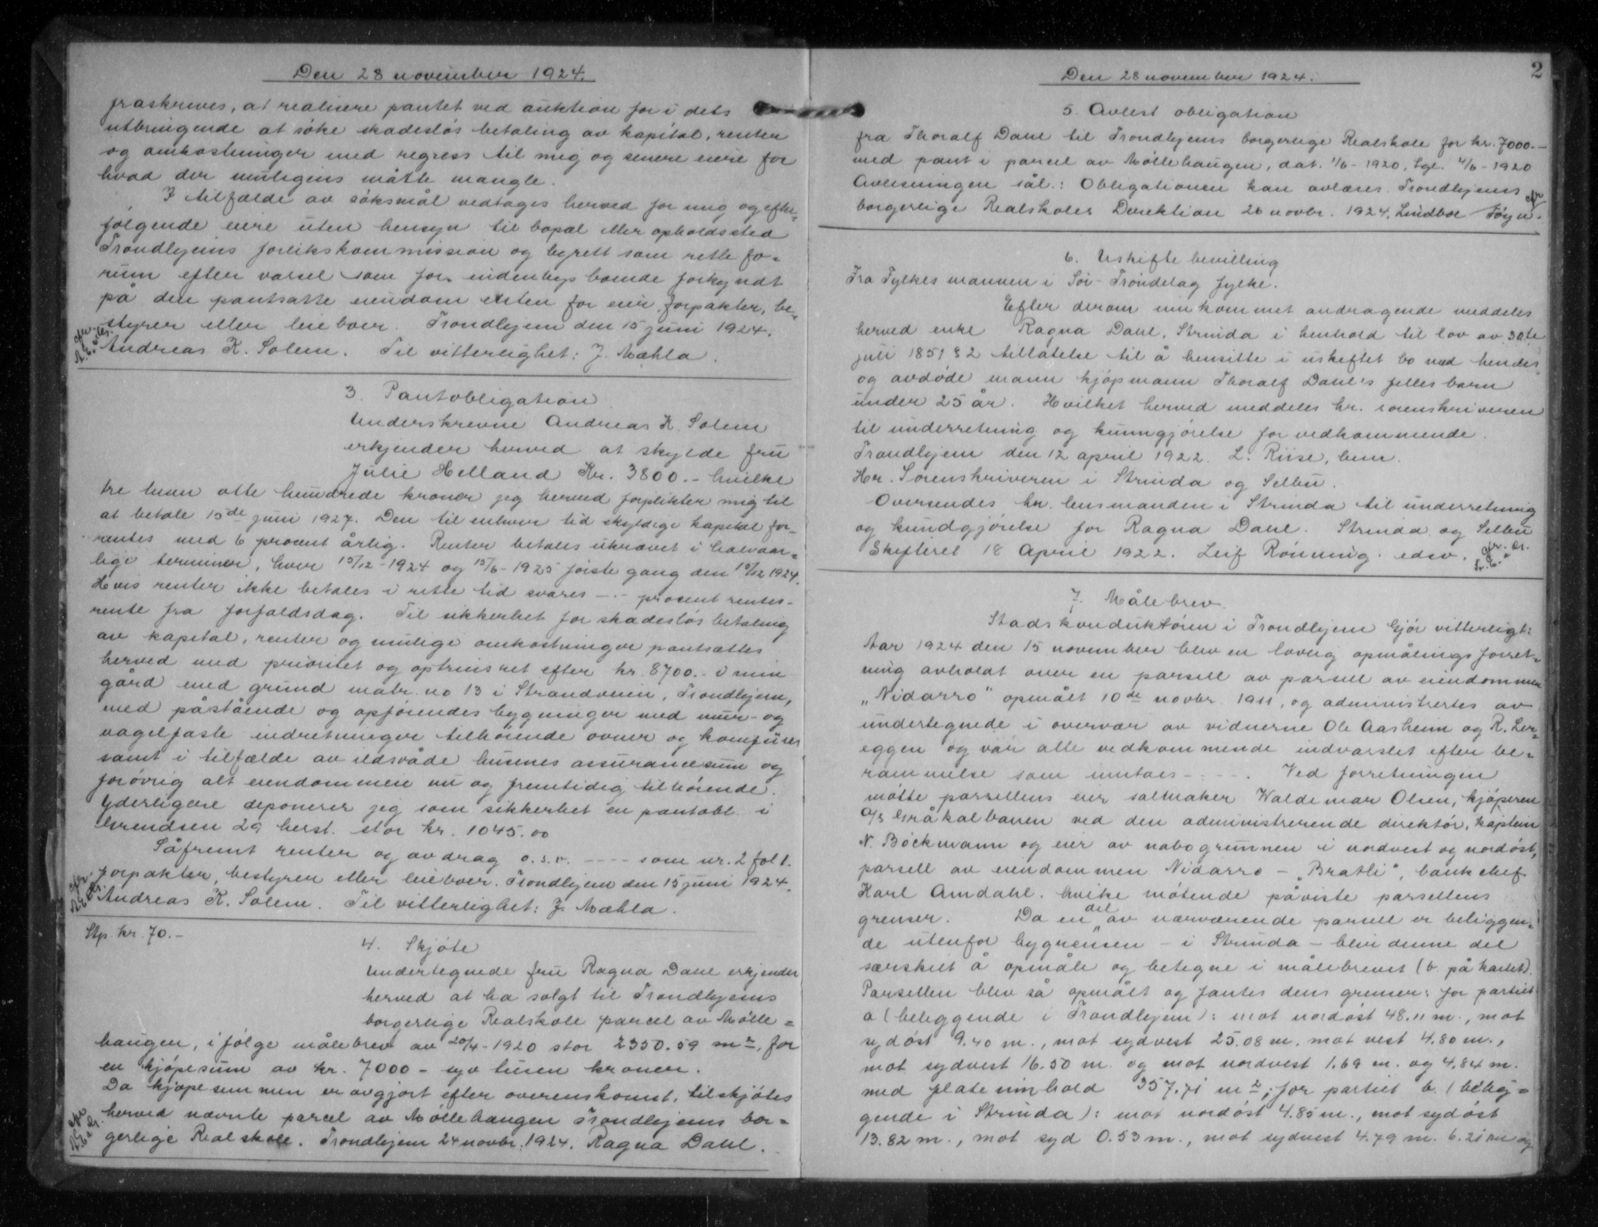 Den 28 november 1924.
fraskrives, at realisere pantet ved auktion for i dets
utbringende at söke skadeslös betaling av kapital, renter
og omkostninger med regress til mig og senere eiere for
hvad der muligens måtte mangle.
I tilfælde av söksmål vedtages herved for mig og efter-
fölgende eiere uten hensyn til bopæl eller opholdssted
Trondhjems forlikskommission og byrett som rette fo-
rum efter varsel som for indenbys boende forkyndt
på den pantsatte eiendom enten for eier, forpakter, be-
styrer eller leieboer. Trondhjem den 15 juni 1924.
Andreas K. Solem. Til vitterlighet: J. Mæhla.
3. Pantobligation
Underskrevne Andreas K. Solem
erkjender herved at skylde fru
Julie Helland Kr. 3800.- hvilke
tre tusen otte hundrede kroner jeg herved forplikter mig til
at betale 15de juni 1927. Den til enhver tid skyldige kapital for-
rentes med 6 procent årlig. Renter betales ukrævet i halvaar-
lige terminer, hver 15/12-1924 og 15/6-1925 förste gang den 15/12 1924.
Hvis renter ikke betales i rette tid svares -.- procent rentes-
rente fra forfaldsdag. Til sikkerhet for skadeslös betaling
av kapital, renter og mulige omkostninger pantsættes
herved med prioritet og optrinsret efter kr. 8700.- i min
gård med grund matr. no 13 i Strandveien, Trondhjem,
med påstående og opförendes bygninger med mur- og
nagelfaste indretninger tilhörende ovner og komfürer
samt i tilfælde av ildsvåde husenes assurancesum og
forövrig alt eiendommen nu og fremtidig tilhörende.
Yderligere deponerer jeg som sikkerhet en pantobl. i
Grendsen 29 herst. stor kr. 1045.00
Såfremt renter og avdrag o.s.v. ---- som nr. 2 fol 1.
forpakter, bestyrer eller leieboer. Trondhjem den 15 juni 1924.
Andreas K. Solem. Til vitterlighet: J. Mæhla.
Stp. kr. 70.-
4. Skjöte
Undertegnede fru Ragna Dahl erkjender
herved at ha solgt til Trondhjems
borgerlige Realskole parcel av Mölle-
haugen, i fölge målebrev av 20/4-1920 stor 2350.59 m2, for
en kjöpesum av kr. 7000 - syv tusen kroner.
Da kjöpesummen er avgjort efter overenskomst, tilskjötes
herved nævnte parcel av Möllehaugen Trondhjems bor-
gerlige Realskole. Trondhjem 24 novbr. 1924. Ragna Dahl.
2
Den 28 november 1924.
5. Avlest obligation
fra Thoralf Dahl til Trondhjems borgerlige Realskole for kr. 7000.-
med pant i parcel av Möllehaugen, dat. 1/6-1920, tgl. 4/6-1920
Avlesningen sål.: Obligationen kan avlæses. Trondhjems
borgerlige Realskoles Direktion 26 novbr. 1924. Lindboe
6. Uskiftebevilling
Fra Fylkesmannen i Sör-Tröndelag fylke.
Efter derom innkommet andragende meddeles
herved enke Ragna Dahl, Strinda i henhold til lov av 30te
juli 1851 § 2 tillatelse til å hensitte i uskiftet bo med hendes
og avdöde mann kjöpmann Thoralf Dahl's felles barn
under 25 år. Hvilket herved meddeles hr. sorenskriveren
til underretning og kunngjörelse for vedkommende.
Trondhjem den 12 april 1922. L. Riise, bem.
Hr. Sorenskriveren i Strinda og Selbu.
Oversendes hr. lensmanden i Strinda til underretning
og kundgjörelse for Ragna Dahl. Strinda og Selbu
Skifteret 18 April 1922. Leif Rönning. edsv.
7. Målebrev
Stadskonduktören i Trondhjem Gjör vitterligt:
Aar 1924 den 15 november blev en lovlig opmålingsforret-
ning avholdt over en parsell av parsell av eiendommen
"Nidarro" opmålt 10de novbr. 1911, og administrertes av
undertegnede i overvær av vidnerne Ole Aasheim og R. Ler-
eggen og var alle vedkommende indvarslet efter be-
rammelse som inntaes -.-.-. Ved forretningen
mötte parsellens eier salmaker Waldemar Olsen, kjöperen
A/S Gråkalbanen ved den administrerende direktör, kaptein
N. Böckmann og eier av nabogrunnen i nordvest og nordöst,
parsell av eiendommen Nidarro - "Bratli", banksjef
Karl Amdahl. hvilke mötende påviste parsellens
grenser. Da en del av nærværende parsell er beliggen-
de utenfor bygrensen - i Strinda - blev denne del
særskilt å opmåle og betegne i målebrevet (b. på kartet).
Parsellen blev så opmålt og fantes dens grenser: for partiet
a (beliggende i Trondhjem): mot nordöst 48.11 m., mot
sydöst 9.40 m., mot sydvest 25.08 m. mot vest 4.80 m.,
mot sydvest 16.50 m. og mot nordvest 1.69 m. og 4.84 m.
med flateinnhold 357.71 m2; for partiet b. (belig-
gende i Strinda): mot nordöst 4.85 m., mot sydöst
13.82 m., mot syd 0.53 m., mot sydvest 4.79 m. 6.21 m og